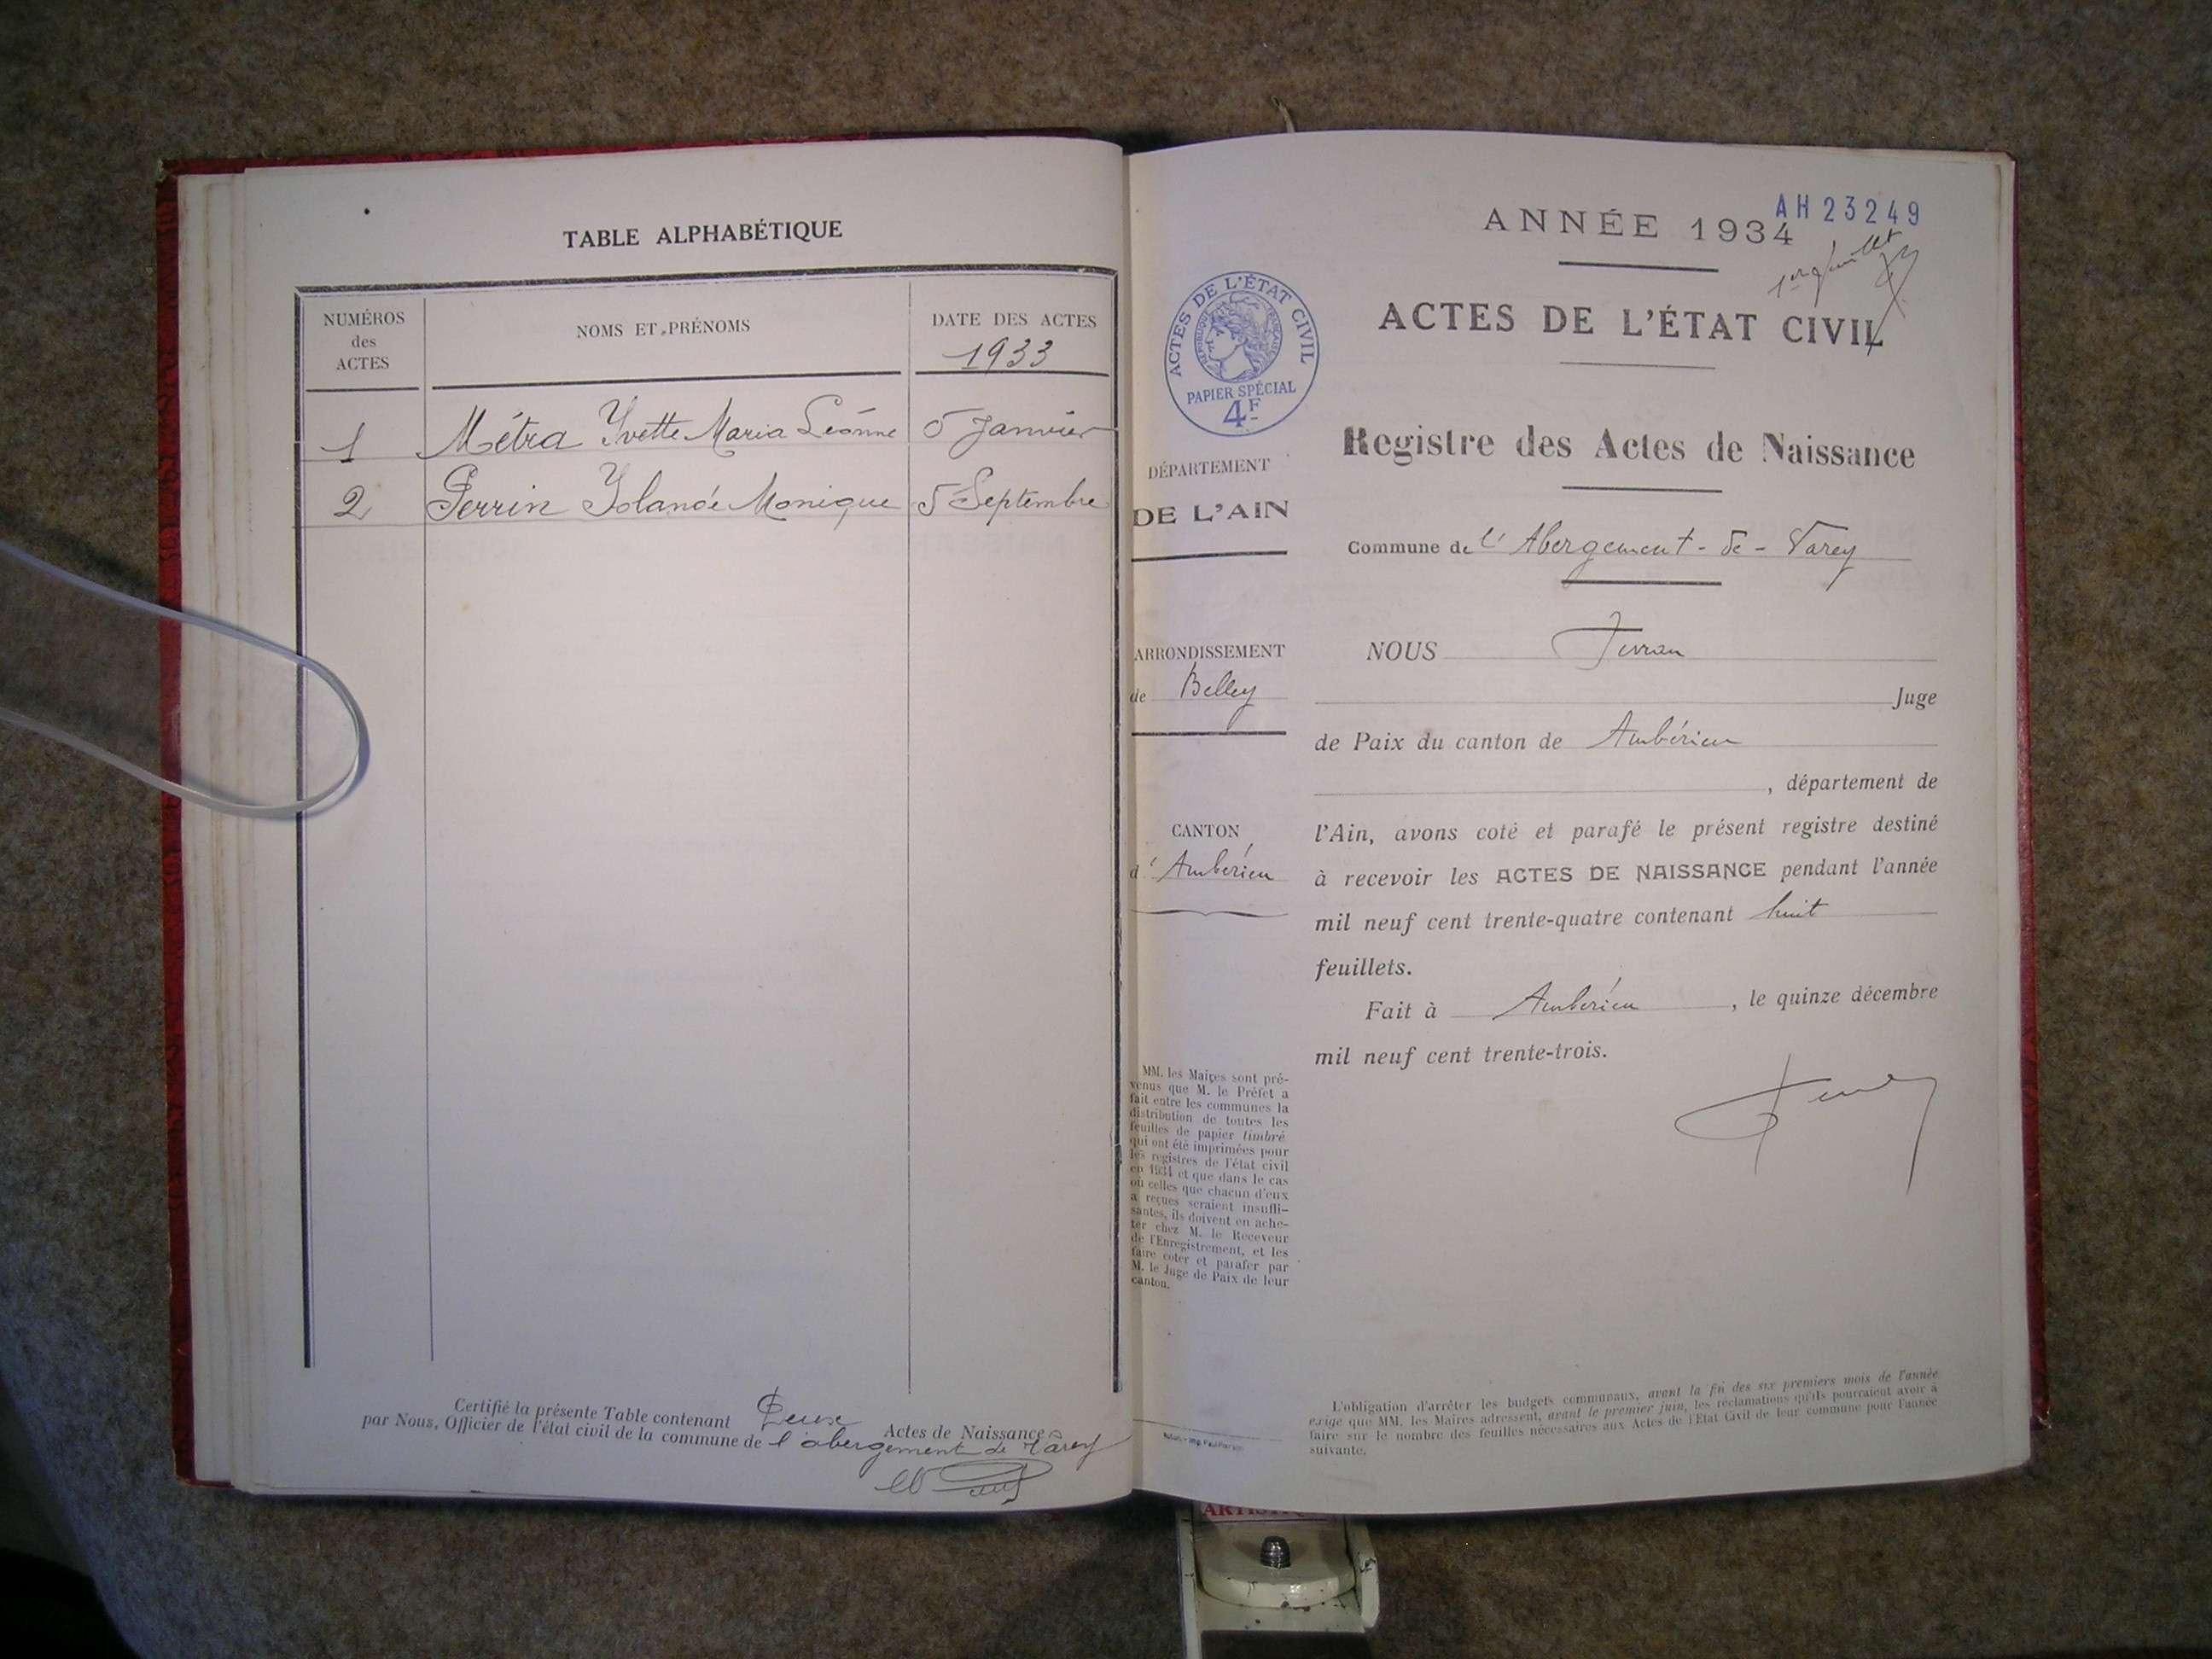 TABLE ALPHABÉTIQUE
NUMÉROS
des
ACTES
NOMS ET PRÉNOMS
DATE DES ACTES
1933
1 Métra Yvette Maria Léonne 5 Janvier
2 Perrin Yolande Monique 5 Septembre
Certifié la présente Table contenant Deux Actes de Naissance
par Nous, Officier de l'état civil de la commune de l'abergement de Varey
AH 23249
ANNÉE 1934
ACTES DE L'ÉTAT CIVIL
RÉPUBLIQUE FRANÇAISE
PAPIER SPÉCIAL
4F
ACTES DE L'ÉTAT CIVIL
DÉPARTEMENT
DE L'AIN
ARRONDISSEMENT
de Belley
CANTON
d'Ambérieu
MM. les Maires sont pré-
venus que M. le Préfet a
fait entre les communes la
distribution de toutes les
feuilles de papier timbré
qui ont été imprimées pour
les registres de l'état civil
en 1934 et que dans le cas
où celles que chacun d'eux
a reçues seraient insuffi-
santes, ils doivent en ache-
ter chez M. le Receveur
de l'Enregistrement, et les
faire coter et parafer par
M. le Juge de Paix de leur
canton.
Registre des Actes de Naissance
Commune de l'Abergement-de-Varey
NOUS
Juge
de Paix du canton de Ambérieu
, département de
l'Ain, avons coté et parafé le présent registre destiné
à recevoir les ACTES DE NAISSANCE pendant l'année
mil neuf cent trente-quatre contenant huit
feuillets.
Fait à Ambérieu, le quinze décembre
mil neuf cent trente-trois.
L'obligation d'arrêter les budgets communaux, avant la fin des six premiers mois de l'année
exige que MM. les Maires adressent, avant le premier juin, les réclamations qu'ils pourraient avoir à
faire sur le nombre des feuilles nécessaires aux Actes de l'Etat Civil de leur commune pour l'année
suivante.